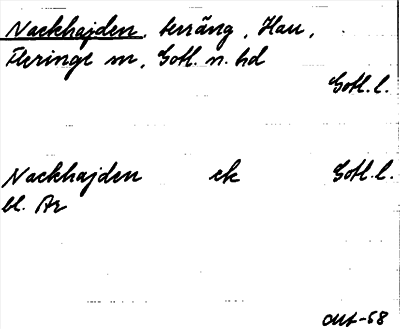 Nackhajden, terräng, Hau,
Fleringe sn, Gotl. n. hd
Gotl. l.
Nackhajden ek Gotl. l.
bl. Ar
-68